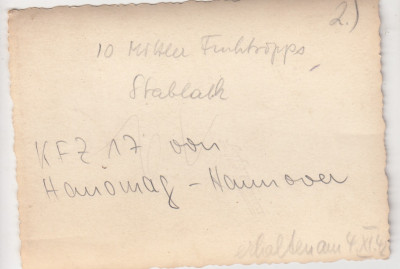 2.)
10 Mittler Funktrupps
Stablack
KFZ 17 von
Hanomag - Hannover
erhalten am 4. XI.